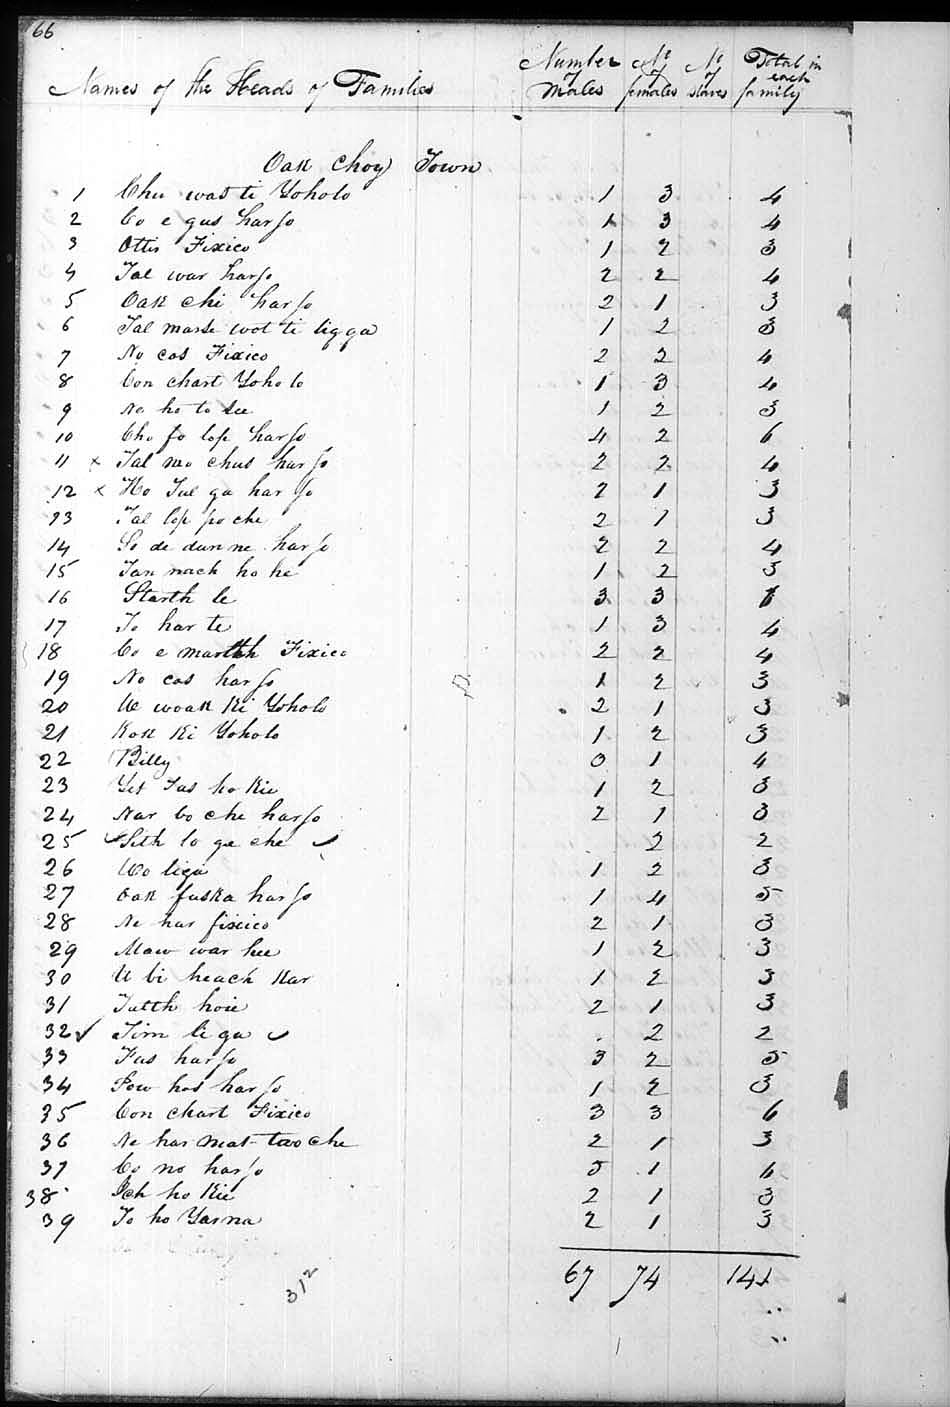 66
Names of the Heads of Families Number of Males No of females No of slaves Total in each family
Oak Choy Town
1 Chu was ti Yoholo 1 3 4
2 Co e gus harjo 1 3 4
3 Ottis Fixico 1 2 3
4 Tal war harjo 2 2 4
5 Oak chi harjo 2 1 3
6 Tal marse wot ti ligga 1 2 3
7 No cos Fixico 2 2 4
8 Con chart Yoholo 1 3 4
9 No ho to see 1 2 3
10 Cho fo lop harjo 4 2 6
11 x Tal mo chus harjo 2 2 4
12 x Ho Tul ga harjo 2 1 3
13 Tal lop po che 2 1 3
14 So de dun ne harjo 2 2 4
15 Tan nack ho he 1 2 3
16 Starth le 3 3 6
17 To har te 1 3 4
18 Co e marthh Fixico 2 2 4
19 No cos harjo 1 2 3
20 We woak Ki Yoholo 2 1 3
21 Kok Ki Yoholo 1 2 3
22 Billy 3 1 4
23 Yet Tus ho Kie 1 2 3
24 Nar bo che harjo 2 1 3
25 Sith lo ga che 2 2
26 Wo liga 1 2 3
27 Oak fuska harjo 1 4 5
28 Ne har fixico 2 1 3
29 Maw war hee 1 2 3
30 U bi heach Kar 1 2 3
31 Tatth hoie 2 1 3
32 ✓ Tim li ga ✓ 2 2
33 Fus harjo 3 2 5
34 Pow hos harjo 1 2 3
35 Con chart Fixico 3 3 6
36 Ne har mat two che 2 1 3
37 Co no harjo 5 1 6
38 Ich ho Kie 2 1 3
39 To ho Yarna 2 1 3
67 74 141
312